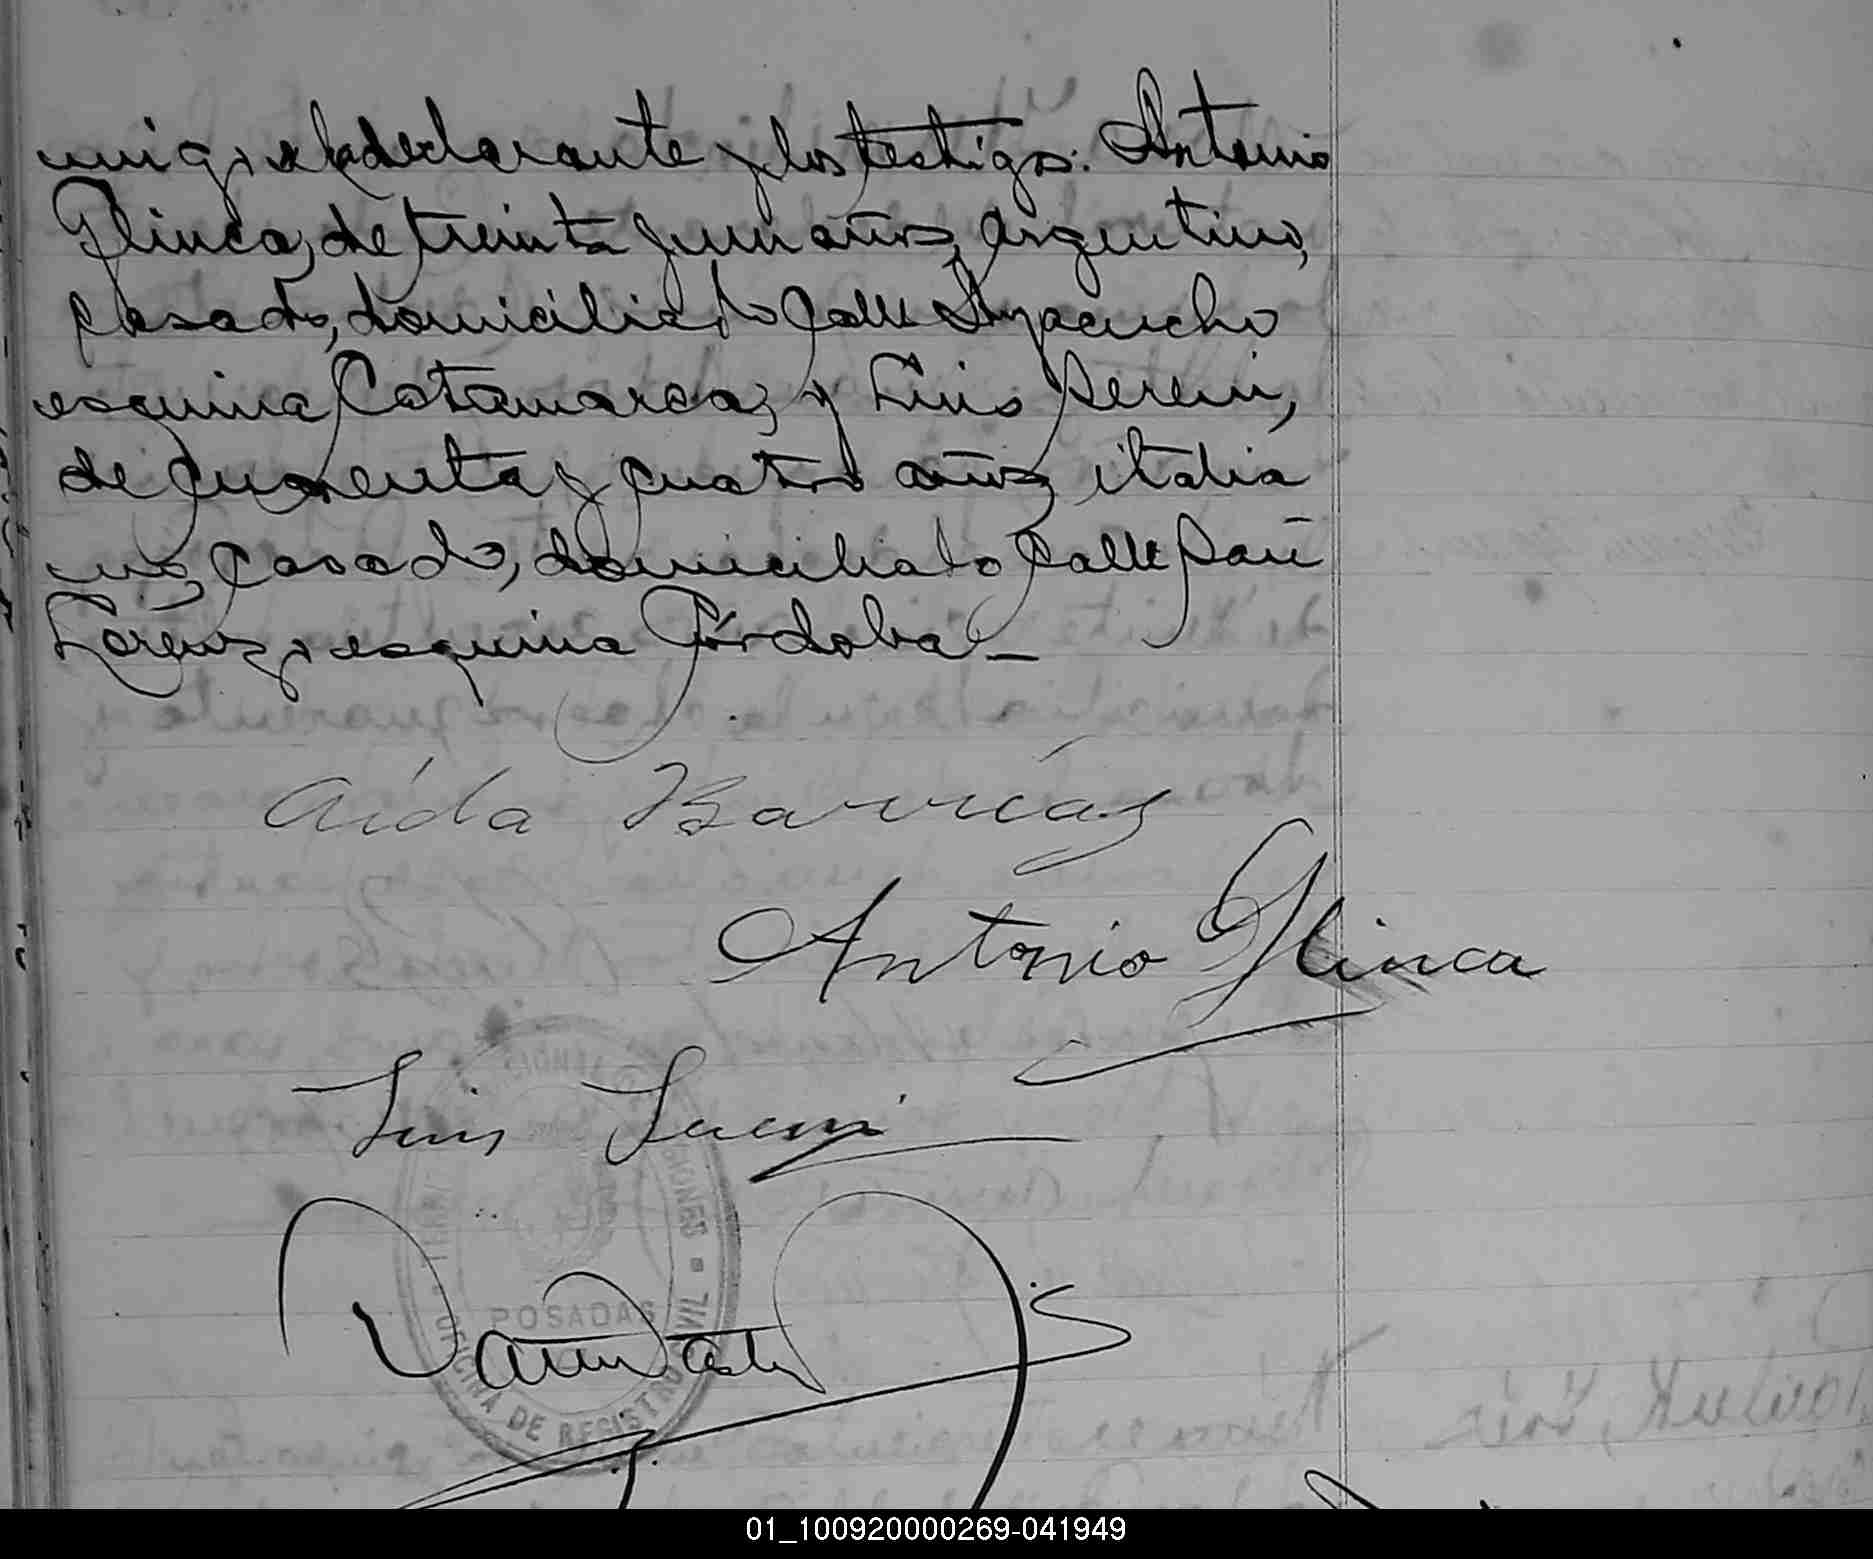 migo la declarante y los testigos: Antonio
Glinca, de treinta y un años, argentino,
casado, domiciliado calle Ayacucho
esquina Catamarca, y Luis Sereni,
de cuarenta y cuatro años, italia
no, casado, domiciliado calle San
Lorenzo esquina Córdoba –
Aída Barrías
Antonio Glinca
Luis
POSADAS
OFICINA DE REGISTRO CIVIL
01_100920000269-041949